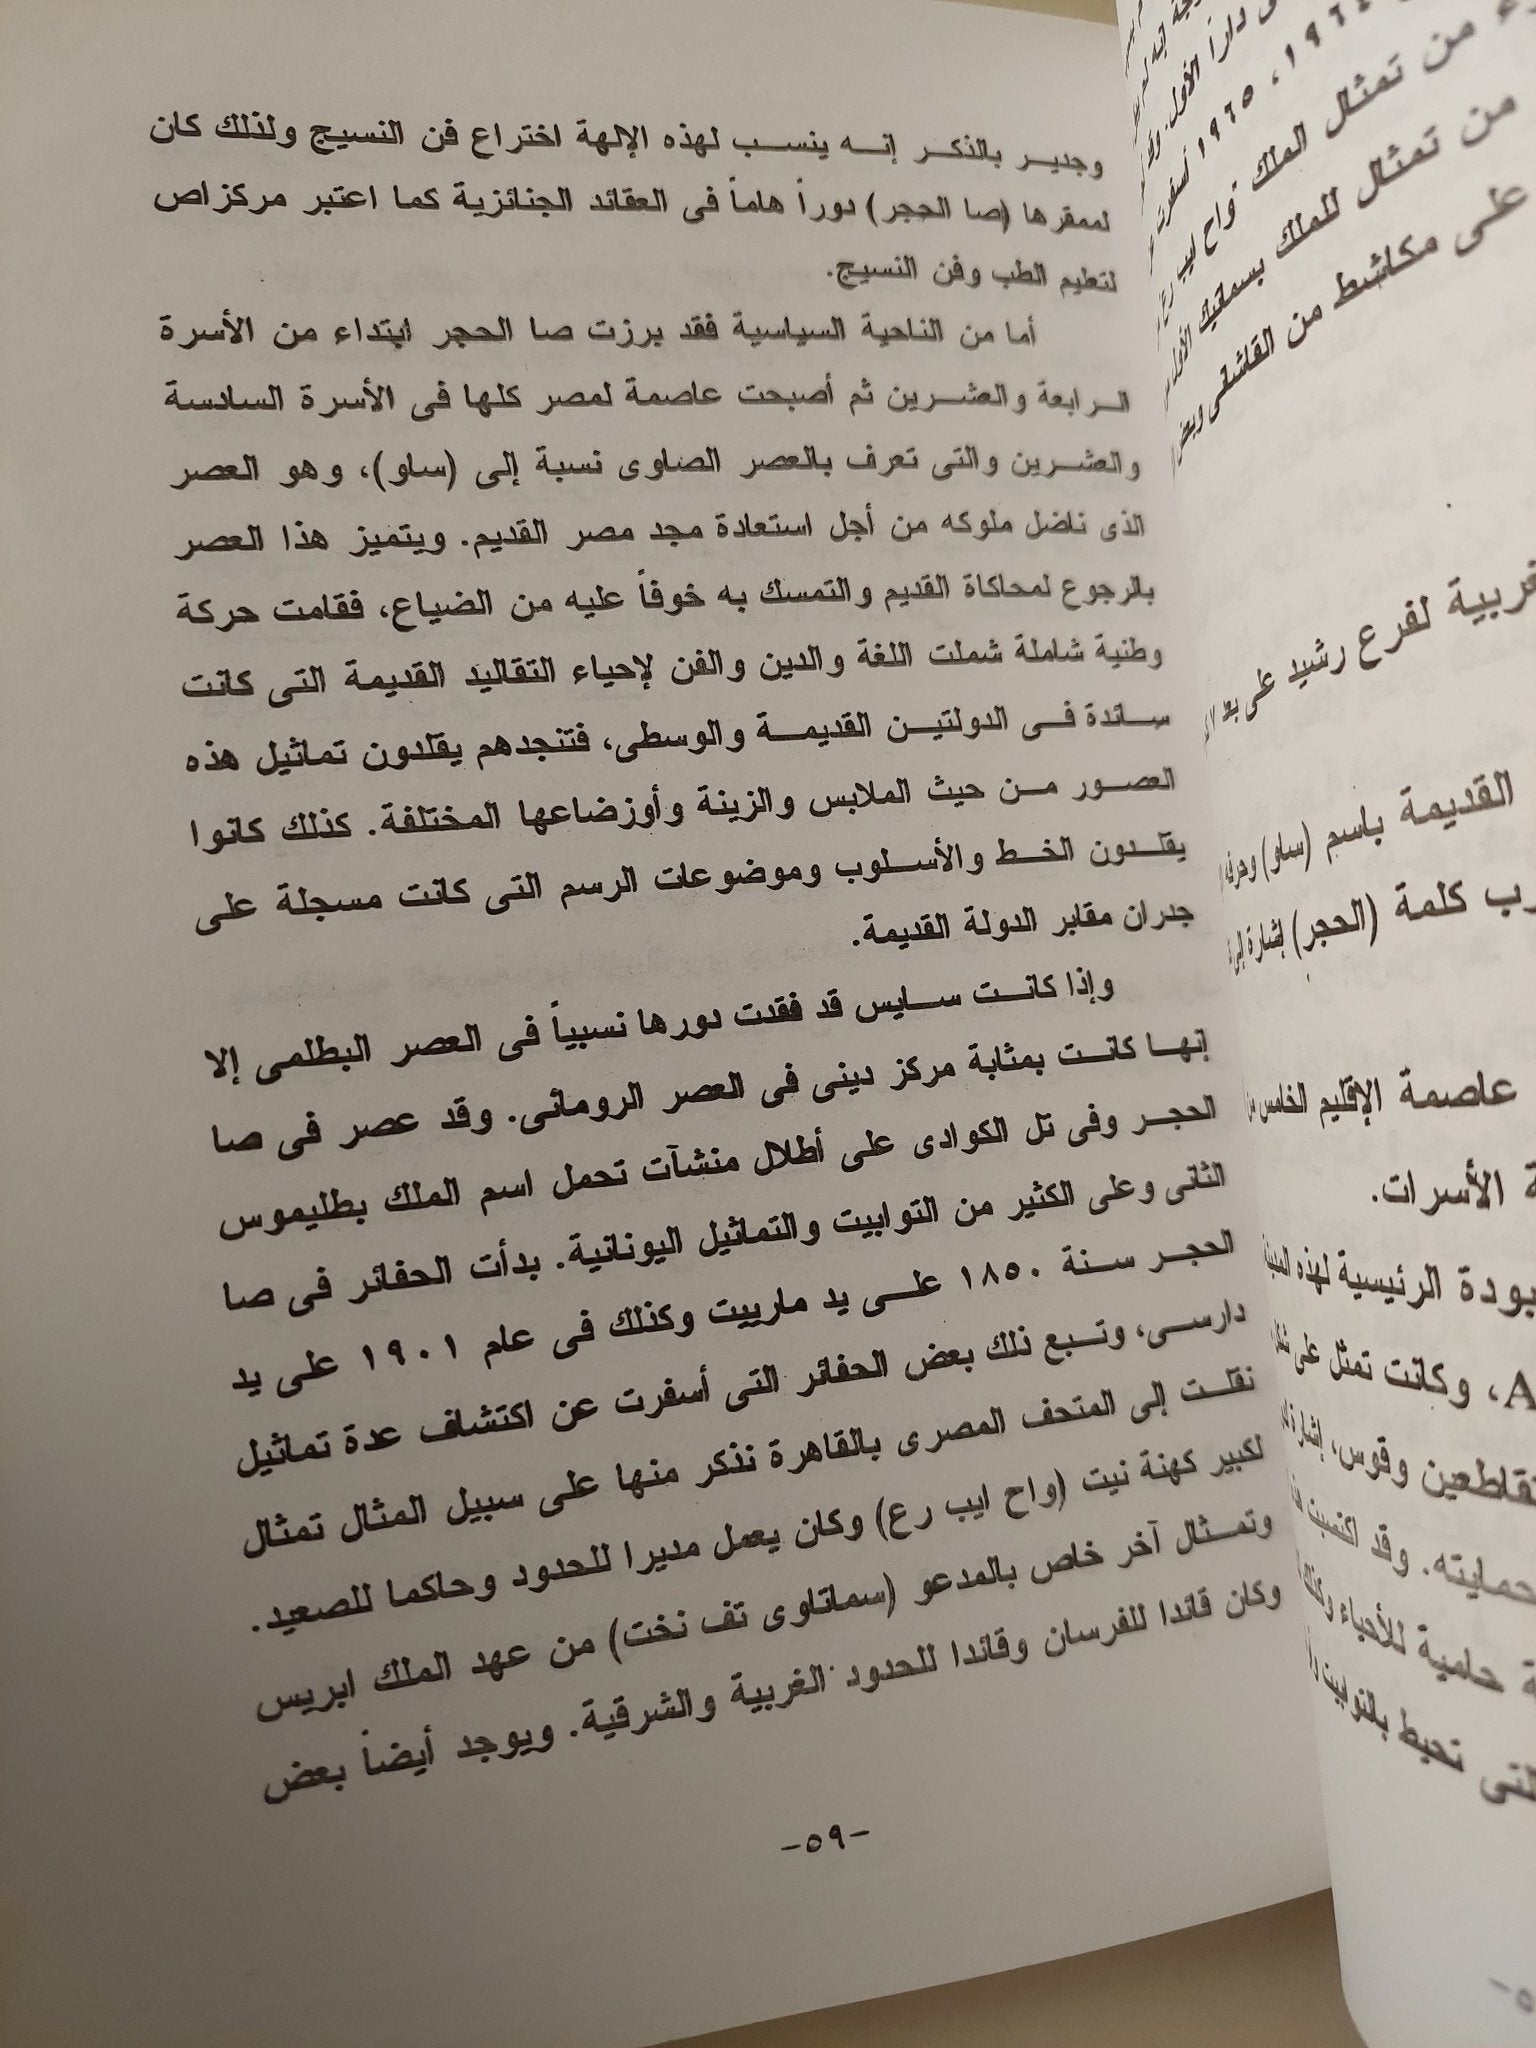 وجدير بالذكر إنه ينسب لهذه الإلهة اختراع فن النسيج ولذلك كان
لممقرها (صا الحجر) دوراً هاماً فى العقائد الجنائزية كما اعتبر مركزاص
لتعليم الطب وفن النسيج.
أما من الناحية السياسية فقد برزت صا الحجر ابتداء من الأسرة
الرابعة والعشرين ثم أصبحت عاصمة لمصر كلها فى الأسرة السادسة
والعشرين والتى تعرف بالعصر الصاوى نسبة إلى (ساو)، وهو العصر
الذى ناضل ملوكه من أجل استعادة مجد مصر القديم. ويتميز هذا العصر
بالرجوع لمحاكاة القديم والتمسك به خوفاً عليه من الضياع، فقامت حركة
وطنية شاملة شملت اللغة والدين والفن لإحياء التقاليد القديمة التى كانت
سائدة فى الدولتين القديمة والوسطى، فتنجدهم يقلدون تماثيل هذه
العصور من حيث الملابس والزينة وأوزضاعها المختلفة. كذلك كانوا
يقلدون الخط والأسلوب وموضوعات الرسم التى كانت مسجلة على
جدران مقابر الدولة القديمة.
وإذا كانت سايس قد فقدت دورها نسبياً فى العصر البطلمى إلا
إنها كانت بمثابة مركز دينى فى العصر الرومانى. وقد عصر فى صا
الحجر وفى تل الكوادى على أطلال منشآت تحمل اسم الملك بطليموس
الثانى وعلى الكثير من التوابيت والتماثيل اليونانية. بدأت الحفائر فى صا
الحجر سنة ١٨٥٠ على يد مارييت وكذلك فى عام ١٩٠١ على يد
دارسى، وتبع ذلك بعض الحفائر التى أسفرت عن اكتشاف عدة تماثيل
نقلت إلى المتحف المصرى بالقاهرة نذكر منها على سبيل المثال تمثال
لكبير كهنة نيت (واح ايب رع) وكان يعمل مديرا للحدود وحاكما للصعيد.
وتمثال آخر خاص بالمدعو (سماتاوى تف نخت) من عهد الملك ابريس
وكان قائدا للفرسان وقائدا للحدود الغربية والشرقية. ويوجد أيضاً بعض
-٥٩-
دارا الأول.
١٩٦٥ أسفرت
من تمثال الملك واح ايب رع
من تمثال للملك بسماتيك الأول
على مكاشط من القاشانى وبعض
لفرع رشيد على بعد
القديمة باسم (ساو)
كلمة (الحجر) إشارة إلى
عاصمة الإقليم الخامس
الأسرات.
الرئيسية لهذه
، وكانت تمثل على
وقوس، إشارة
حمايته. وقد اكتسبت
حامية للأحياء
التى تحيط بالتوابيت